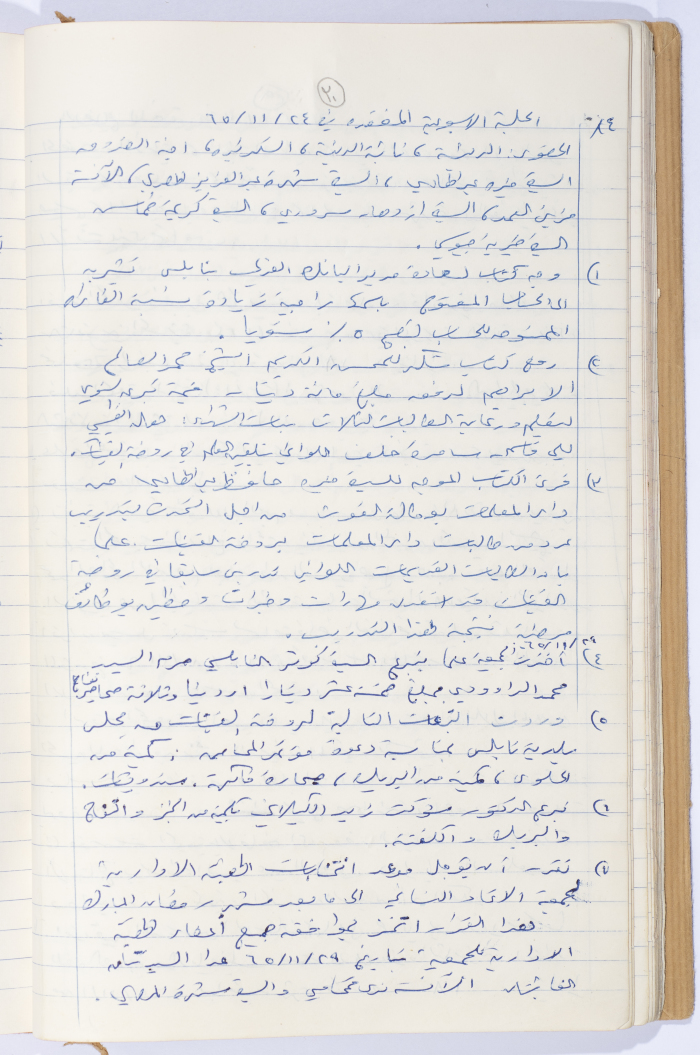 ٢٠
٨٤. الجلسة الاسبوعية المنعقده في ٦٥/١١/٢٤
الحضور: الرئيسة، نائبة الرئيسة، السكرتيره، امينة الصندوق
السيدة عبد الهادي، السيدة شهرة عبد العزيز المصري، الآنسة
السيدة ازدهار سروري، السيدة كريمة
السيدة خيرية
١) وجه كتاب لسعادة مدير البنك العربي بنابلس نشير به
الى الحساب المفتوح راجية زيادة نسبة الفائدة
الممنوحه للحساب لتصبح ٥٪ سنويا.
٢) رفع كتاب شكر للمحسن الكريم الشيخ
الابراهيم لدفعه مبلغ مائة دينار قيمة تبرعه السنوي
لتعليم ورعاية الطالبات الثلاث بنات الشهداء:
ليلى قاسم سامرة خلف اللواتي يتلقين العلم في روضة الفتيات.
٣) قرئ الكتاب الموجه للسيدة عبد الهادي من
دار المعلمات بوكالة الغوث من اجل التحدث بتدريب
عدد من طالبات دار المعلمات بروضة الفتيات. علما
بان الطالبات القديمات اللواتي تدربن سابقا في روضة
الفتيات قد استفدن مهارات وخبرات وحظين بوظائف
نتيجة لهذا التدريب.
٦٥/١١/٢٩
٤) أخذت الجمعية علما بتبرع السيدة كوثر النابلسي حرم السيد
محمد الداوودي بمبلغ خمسة عشر دينارا اردنيا وثلاثة
٥) وردت التبرعات التالية لروضة الفتيات من مجلس
بلدية نابلس بمناسبة دعوة مؤتمر المحامين: كمية من
الحلوى، كمية من البريك، فاكهة، سندويشات.
٦) تبرع الدكتور شوكت زيد الكيلاني بكمية من الخبز والتفاح
والبريك والكفتة.
٧) تقرر أن يؤجل موعد انتخابات الهيئة الادارية
لجمعية الاتحاد النسائي الى ما بعد شهر رمضان المبارك
هذا القرار اتخذ بموافقة جميع أعضاء الهيئة
الادارية للجمعية بتاريخ ٦٥/١١/٢٩ عدا السيدتان
الغائبتان الآنسة والسيدة شهرة المصري.